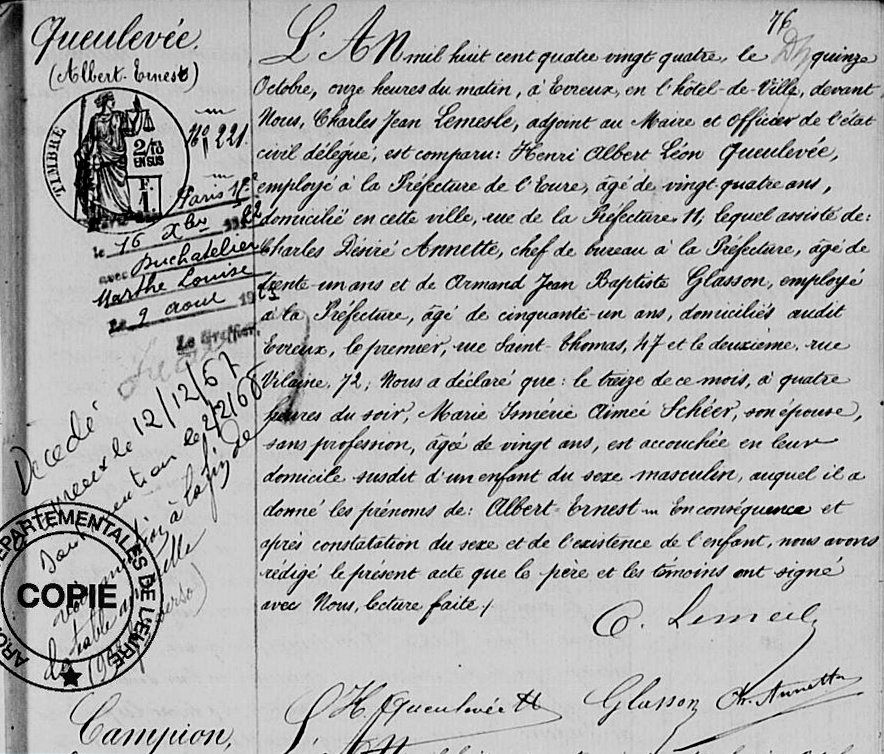 76
Queulevée.
(Albert-Ernest)
TIMBRE
2/10
EN SUS
F.
1.
No 221.
Paris 1
le 16 Xbre 1922
avec Duchatelier
Marthe Louise
Le 9 aout 19
Le Greffier,
Decedé
le 12/12/67
mention le 2/2/68
à la fin de
la table
verso)
DEPARTEMENTALES DE L'EURE
COPIE
L'AN mil huit cent quatre vingt quatre, le quinze
Octobre, onze heures du matin, à Evreux, en l'hôtel-de-Ville, devant
Nous, Charles Jean Lemesle, adjoint au Maire et Officier de l'état
civil délégué, est comparu: Henri Albert Léon Queulevée,
employé à la Préfecture de l'Eure, âgé de vingt-quatre ans,
domicilié en cette ville, rue de la Préfecture 11, lequel assisté de:
Charles Désiré Annette, chef de bureau à la Préfecture, âgé de
trente-un ans et de Armand Jean Baptiste Glasson, employé
à la Préfecture, âgé de cinquante-un ans, domiciliés audit
Evreux, le premier, rue Saint-Thomas, 47 et le deuxième, rue
Vilaine, 72; Nous a déclaré que: le treize de ce mois, à quatre
heures du soir, Marie Isménie Aimée Schéer, son épouse,
sans profession, âgée de vingt ans, est accouchée en leur
domicile susdit d'un enfant du sexe masculin, auquel il a
donné les prénoms de: Albert-Ernest. En conséquence et
après constatation du sexe et de l'existence de l'enfant, nous avons
rédigé le présent acte que le père et les témoins ont signé
avec Nous, lecture faite./
C. Lemesle
H Queulevée Glasson Ch. Annette
Campion,